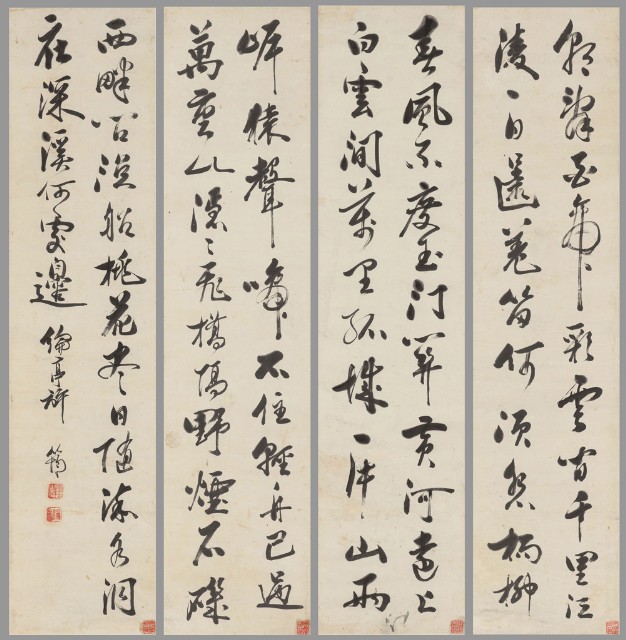 朝辭白帝彩雲間千里江
陵一日還羌笛何須怨楊柳
春風不度玉門關黃河遠上
白雲間萬里孤城一片山兩
岸猿聲啼不住輕舟已過
萬重山隱〻飛橋隔野煙石磯
西畔問漁船桃花盡日隨流水洞
在深溪何處邊 倫亭許筠